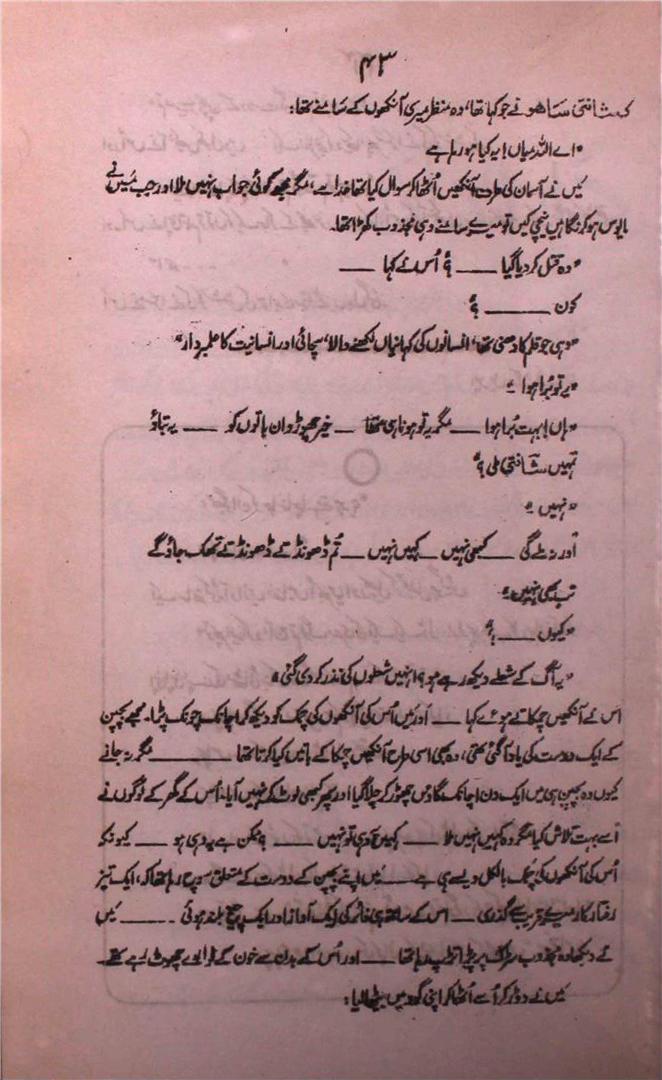 ۴۳
کہ شانتی ساھو نے جو کہا تھا، وہ منظر میری آنکھوں کے سامنے تھا:
"اے اللہ میاں! یہ کیا ہو رہا ہے
میں نے آسمان کی طرف آنکھیں اُٹھا کر سوال کیا تھا خدا سے، مگر مجھ کو کوئی جواب نہیں ملا اور جب میں نے
مایوس ہو کر نگاہیں نیچی کیں تو میرے سامنے وہی مجذوب کھڑا تھا۔
"وہ قتل کر دیا گیا ـــــ؟ اُس نے کہا ـــــ
کون ـــــ؟"
"وہی جو قلم کا دھنی تھا، افسانوں کی کہانیاں لکھنے والا، سچائی اور انسانیت کا علمبردار"
"یہ تو بُرا ہوا۔"
"ہاں! بہت بُرا ہوا ـــــ مگر یہ تو ہونا ہی تھا ـــــ خیر چھوڑو ان باتوں کو ـــــ یہ بتاؤ
تمہیں شانتی ملی؟"
"نہیں۔"
اور نہ ملے گی ـــــ کبھی نہیں ـــــ کہیں نہیں ـــــ تم ڈھونڈتے ڈھونڈتے تھک جاؤ گے
تب بھی نہیں۔"
"کیوں ـــــ؟"
"یہ آگ کے شعلے دیکھ رہے ہو؟ انہیں شعلوں کی نذر کر دی گئی"
اس نے آنکھیں چمکاتے ہوئے کہا ـــــ اور میں اُس کی آنکھوں کی چمک کو دیکھ کر اچانک چونک پڑا۔ مجھے بچپن
کے ایک دوست کی یاد آ گئی تھی، وہ بھی اسی طرح آنکھیں چمکا کے باتیں کیا کرتا تھا ـــــ مگر نہ جانے
کیوں وہ بچپن ہی میں ایک دن اچانک گاؤں چھوڑ کر چلا گیا اور پھر کبھی لوٹ کر نہیں آیا۔ اُس کے گھر کے لوگوں نے
اُسے بہت تلاش کیا مگر وہ کہیں نہیں ملا ـــــ کہیں وہی تو نہیں ـــــ؟ ممکن ہے یہ وہی ہو ـــــ کیونکہ
اُس کی آنکھوں کی چمک بالکل ویسے ہی ہے ـــــ میں اپنے بچپن کے دوست کے متعلق سوچ رہا تھا کہ، ایک تیز
رفتار کار میرے قریب سے گذری ـــــ اس کے ساتھ ہی فائر کی ایک آواز اور ایک چیخ بلند ہوئی ـــــ میں
نے دیکھا وہ مجذوب سڑک پر پڑا تڑپ رہا تھا ـــــ اور اُس کے بدن سے خون کے فوارے چھوٹ رہے تھے۔
میں نے دوڑ کر اُسے اُٹھا کر اپنی گود میں بیٹھا لیا: